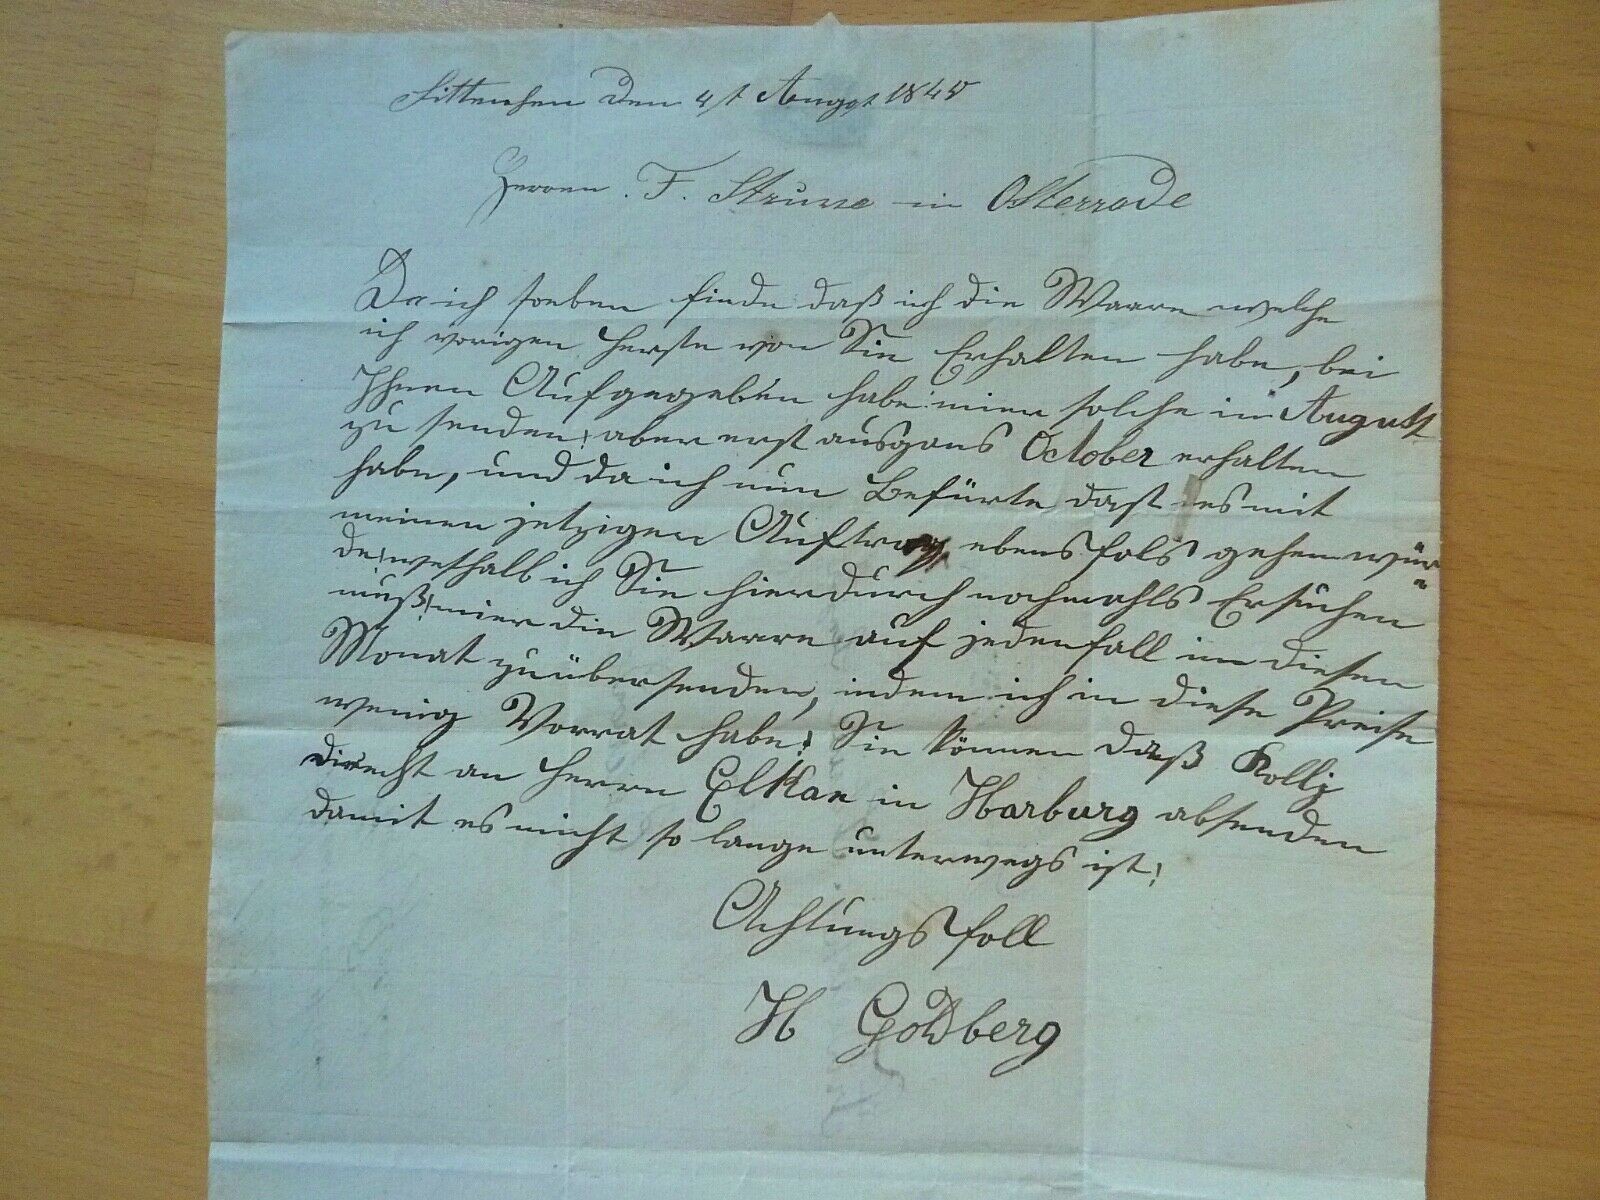 Sittensen den 4t Augst 1845
Herren F. Struve in Osterrode
Da ich soeben finde daß ich die Waare welche
ich vorigen Herste von Sie Erhalten habe, bei
Ihnen Aufgegeben habe mier solche im August
zu senden, aber erst ausgans October erhalten
habe, und da ich nun Befürte dast es mit
meinen jetzigen Auftrag ebensfals gehen wür
de, weshalb ich Sie hierdurch nochmahls Ersuchen
muß, mier die Waare auf jedenfall im diesen
Monat zuübersenden, indem ich in diese Preise
wenig Vorrat habe, Sie können daß Kollj
direcht an Herrn Elkan in Harburg absenden
damit es nicht so lange unterwegs ist!
Achtungsfoll
H Goldberg